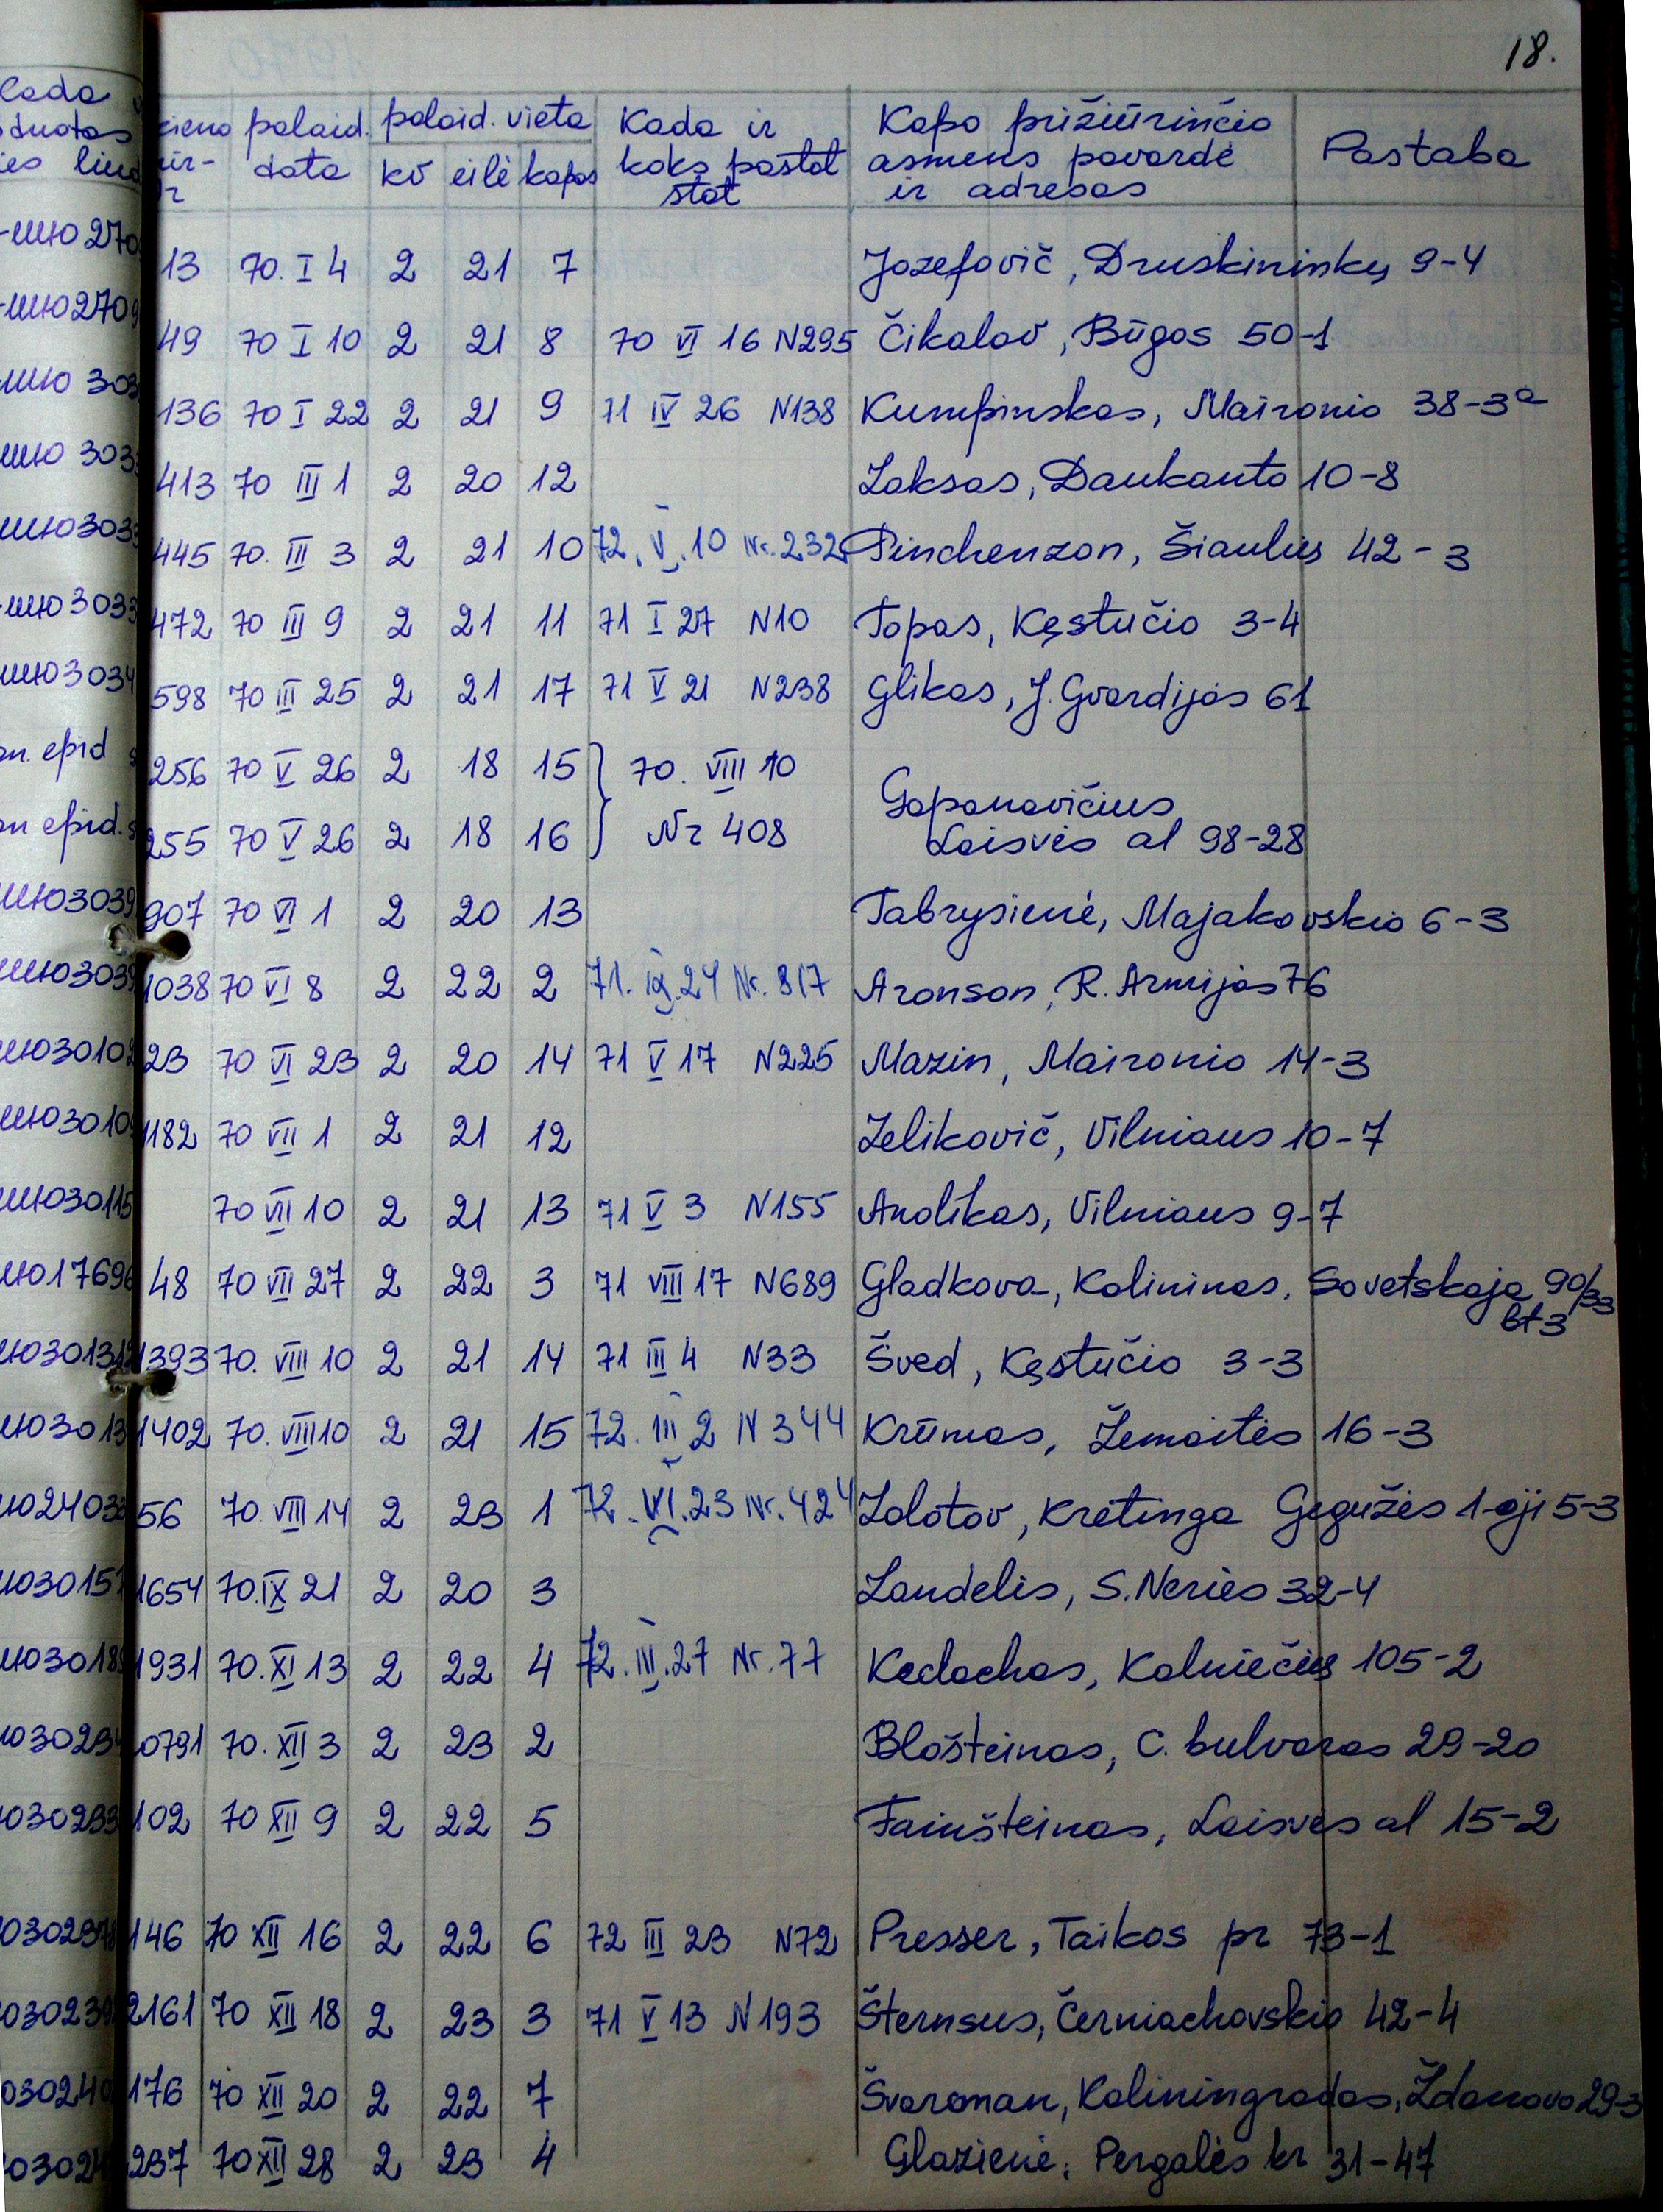 18.
Kada
duotas
ies liud
cieno palaid. palaid. vieta Kada ir Kapo prižiūrinčio Pastaba
data kv eilė kapas koks pastat asmens pavardė
stat ir adresas
13 70. I 4 2 21 7 Jozefovič, Druskininkų 9-4
49 70 I 10 2 21 8 70 VI 16 N295 Čikalov, Būgos 50-1
136 70 I 22 2 21 9 71 IV 26 N138 Kumpinskas, Maironio 38-3a
413 70 III 1 2 20 12 Zaksas, Daukanto 10-8
445 70. III 3 2 21 10 72. V. 10 Nr. 232 Pinchenzon, Šiaulių 42-3
472 70 III 9 2 21 11 71 I 27 N10 Topas, Kęstučio 3-4
598 70 III 25 2 21 17 71 V 21 N238 Glikas, J. Gvardijos 61
256 70 V 26 2 18 15 70. VIII 10 Gaponavičius
255 70 V 26 2 18 16 Nr 408 Laisvės al 98-28
907 70 VI 1 2 20 13 Tabrysienė, Majakovskio 6-3
1038 70 VI 8 2 22 2 71. IX. 24 Nr. 817 Aronson, R. Armijos 76
23 70 VI 23 2 20 14 71 V 17 N225 Mazin, Maironio 14-3
1182 70 VII 1 2 21 12 Zelikovič, Vilniaus 10-7
70 VII 10 2 21 13 71 V 3 N155 Anolikas, Vilniaus 9-7
48 70 VII 27 2 22 3 71 VIII 17 N689 Gladkova, Kalininas, Sovetskaja 90/33
bt3
1393 70. VIII 10 2 21 14 71 III 4 N33 Šved, Kęstučio 3-3
1402 70. VIII 10 2 21 15 72. III 2 N 344 Krūmas, Žemaitės 16-3
56 70. VIII 14 2 23 1 72. VI. 23 Nr. 424 Zolotov, Kretinga Gegužės 1-oji 5-3
1654 70. IX 21 2 20 3 Landelis, S. Neries 32-4
1931 70. XI 13 2 22 4 72. III. 27 Nr. 77 Kedachas, Kalniečių 105-2
0791 70. XII 3 2 23 2 Blošteinas, C. bulvaras 29-20
102 70 XII 9 2 22 5 Fainšteinas, Laisvės al 15-2
146 70 XII 16 2 22 6 72 III 23 N72 Presser, Taikos pr 73-1
2161 70 XII 18 2 23 3 71 V 13 N193 Šternsus, Černiachovskio 42-4
176 70 XII 20 2 22 7 Švarcman, Kaliningradas, Ždanovo 29-3
237 70 XII 28 2 23 4 Glazienė, Pergalės kr 31-47